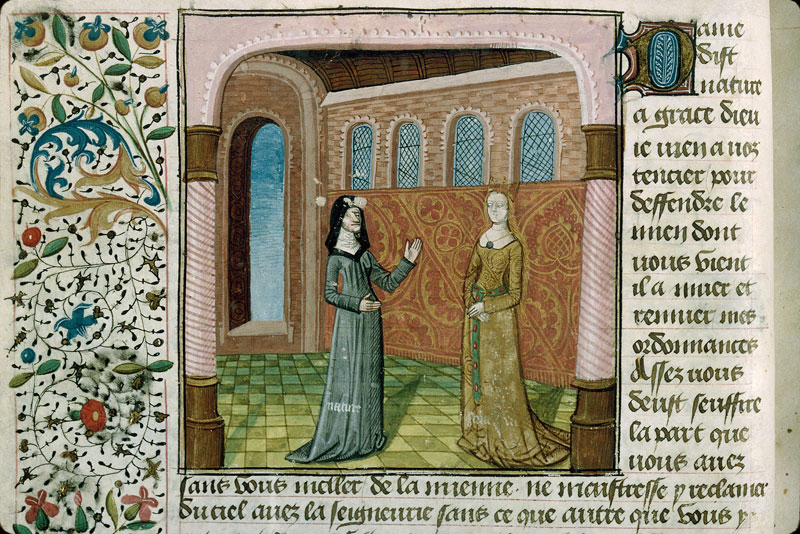 Dame
dist
nature
a grace dieu
ie vien a vos
tencier pour
deffendre le
mien dont
vous vient
il a muer et
remuer mes
ordonnances
Assez vous
deust souffire
la part que
vous avez
sans vous meller de la mienne. ne maistresse y reclamer
Du ciel avez la seigneurie sans ce que autre que vous y
nature